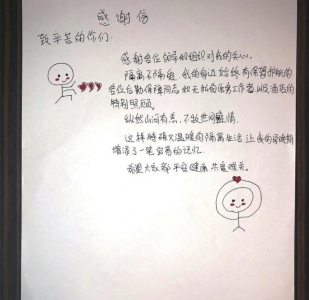 感谢信
致辛苦的你们:
感谢各位领导和组织对我的关心。
隔离不隔爱, 我的身边始终有保驾护航的
各位后勤保障同志 和无私的医务工作者,以及酒店的
特别照顾。
纵然山河有恙, 不敌世间感情.
这样 又温暖的隔离生活 让我的
增添了一笔宝贵的记忆.
希望大家都平安健康 共度难关。